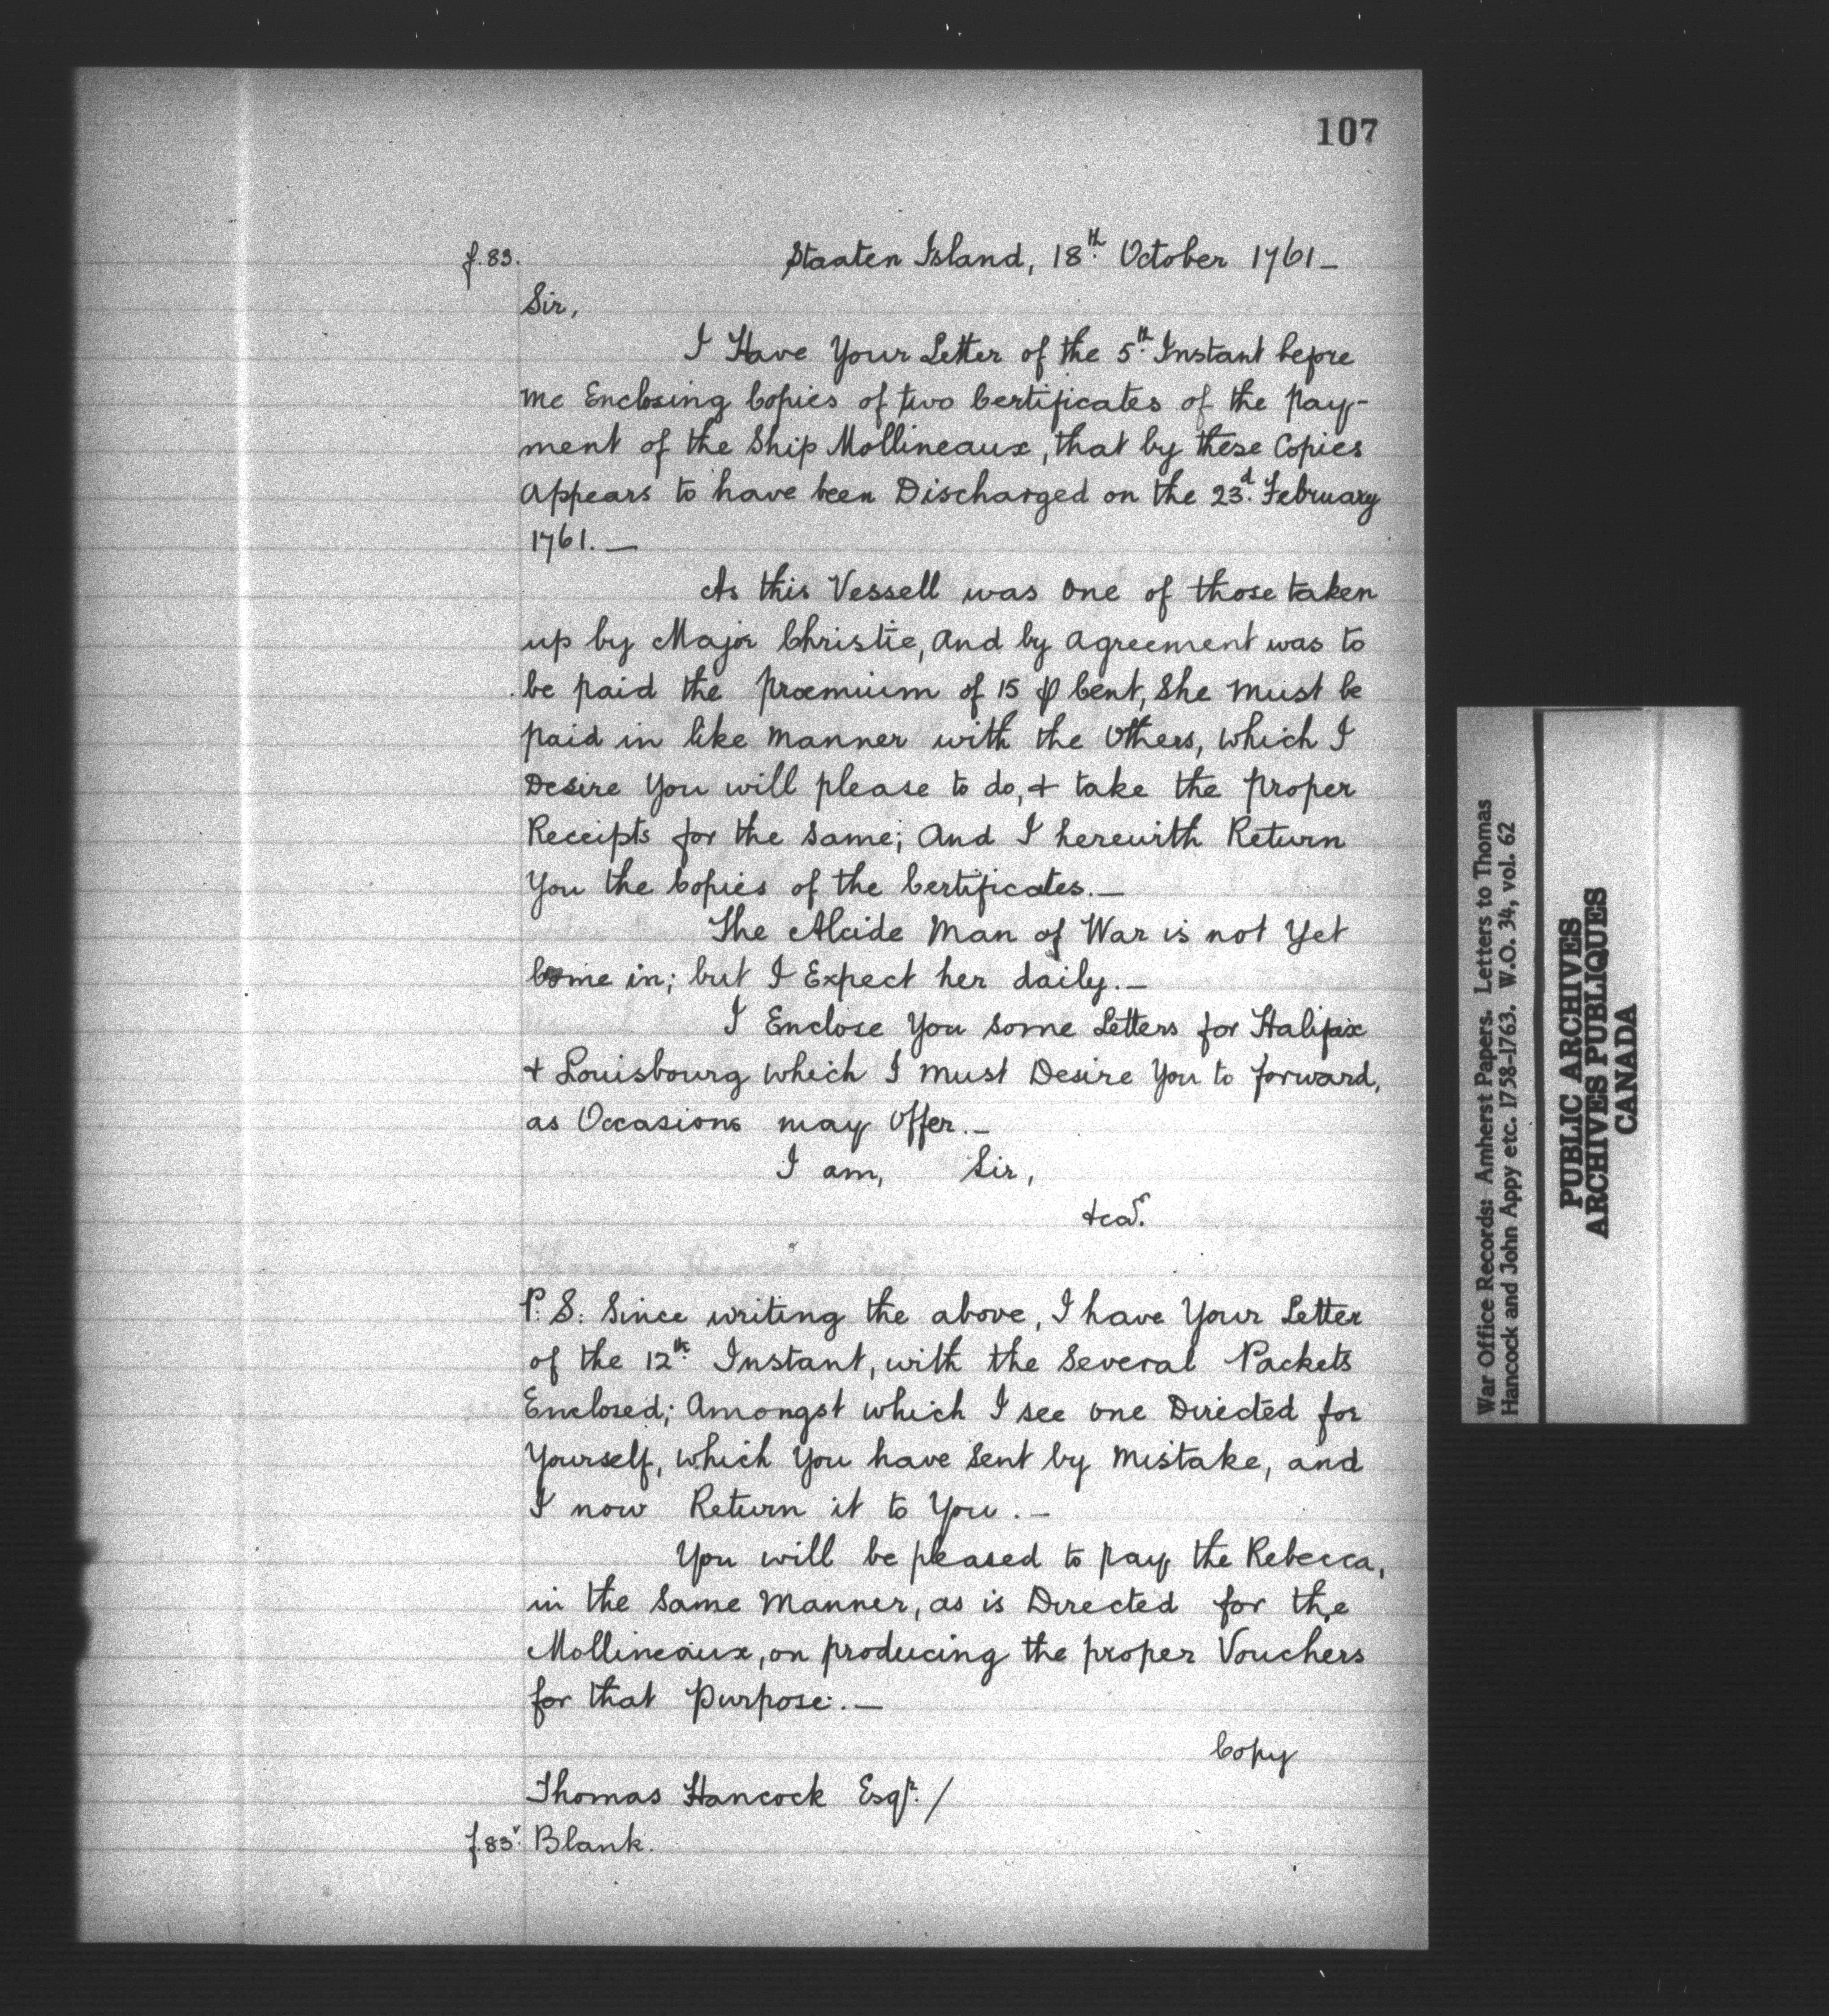 107
f.83. Staaten Island, 18th. October 1761_
Sir,
I Have Your Letter of the 5th. Instant before
me Enclosing Copies of two Certificates of the pay-
ment of the Ship Mollineaux, that by these Copies
appears to have been Discharged on the 23d. February
1761._
As this Vessell was One of those taken
up by Major Christie, And by agreement was to
be paid the proemium of 15 ⅌ Cent, She must be
paid in like manner with the Others, which I
Desire You will please to do, & take the proper
Receipts for the same; And I herewith Return
You the Copies of the Certificates._
The Alcide Man of War is not Yet
Come in; but I Expect her daily._
I Enclose You some Letters for Halifax
& Louisbourg which I must Desire You to forward,
as Occasions may Offer._
I am, Sir,
&ca.
P. S: Since writing the above, I have Your Letter
of the 12th. Instant, with the Several Packets
Enclosed; Amongst which I see one Directed for
Yourself, which You have sent by mistake, and
I now Return it to You._
You will be pleased to pay the Rebecca,
in the Same Manner, as is Directed for the
Mollineaux, on producing the proper Vouchers
for that Purpose._
Copy
Thomas Hancock Esqr. /
f.83v. Blank.
War Office Records: Amherst Papers. Letters to Thomas
Hancock and John Appy etc. 1758-1763. W.O. 34, vol. 62
PUBLIC ARCHIVES
ARCHIVES PUBLIQUES
CANADA